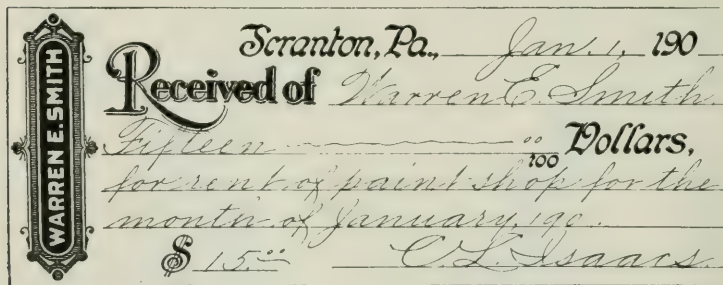 WARREN E. SMITH
Scranton, Pa., Jan. 1, 190
Received of Warren E. Smith
Fifteen 00/100 Dollars,
for rent of paint shop for the
month of January, 190
$ 15.00 C. L. Isaacs.